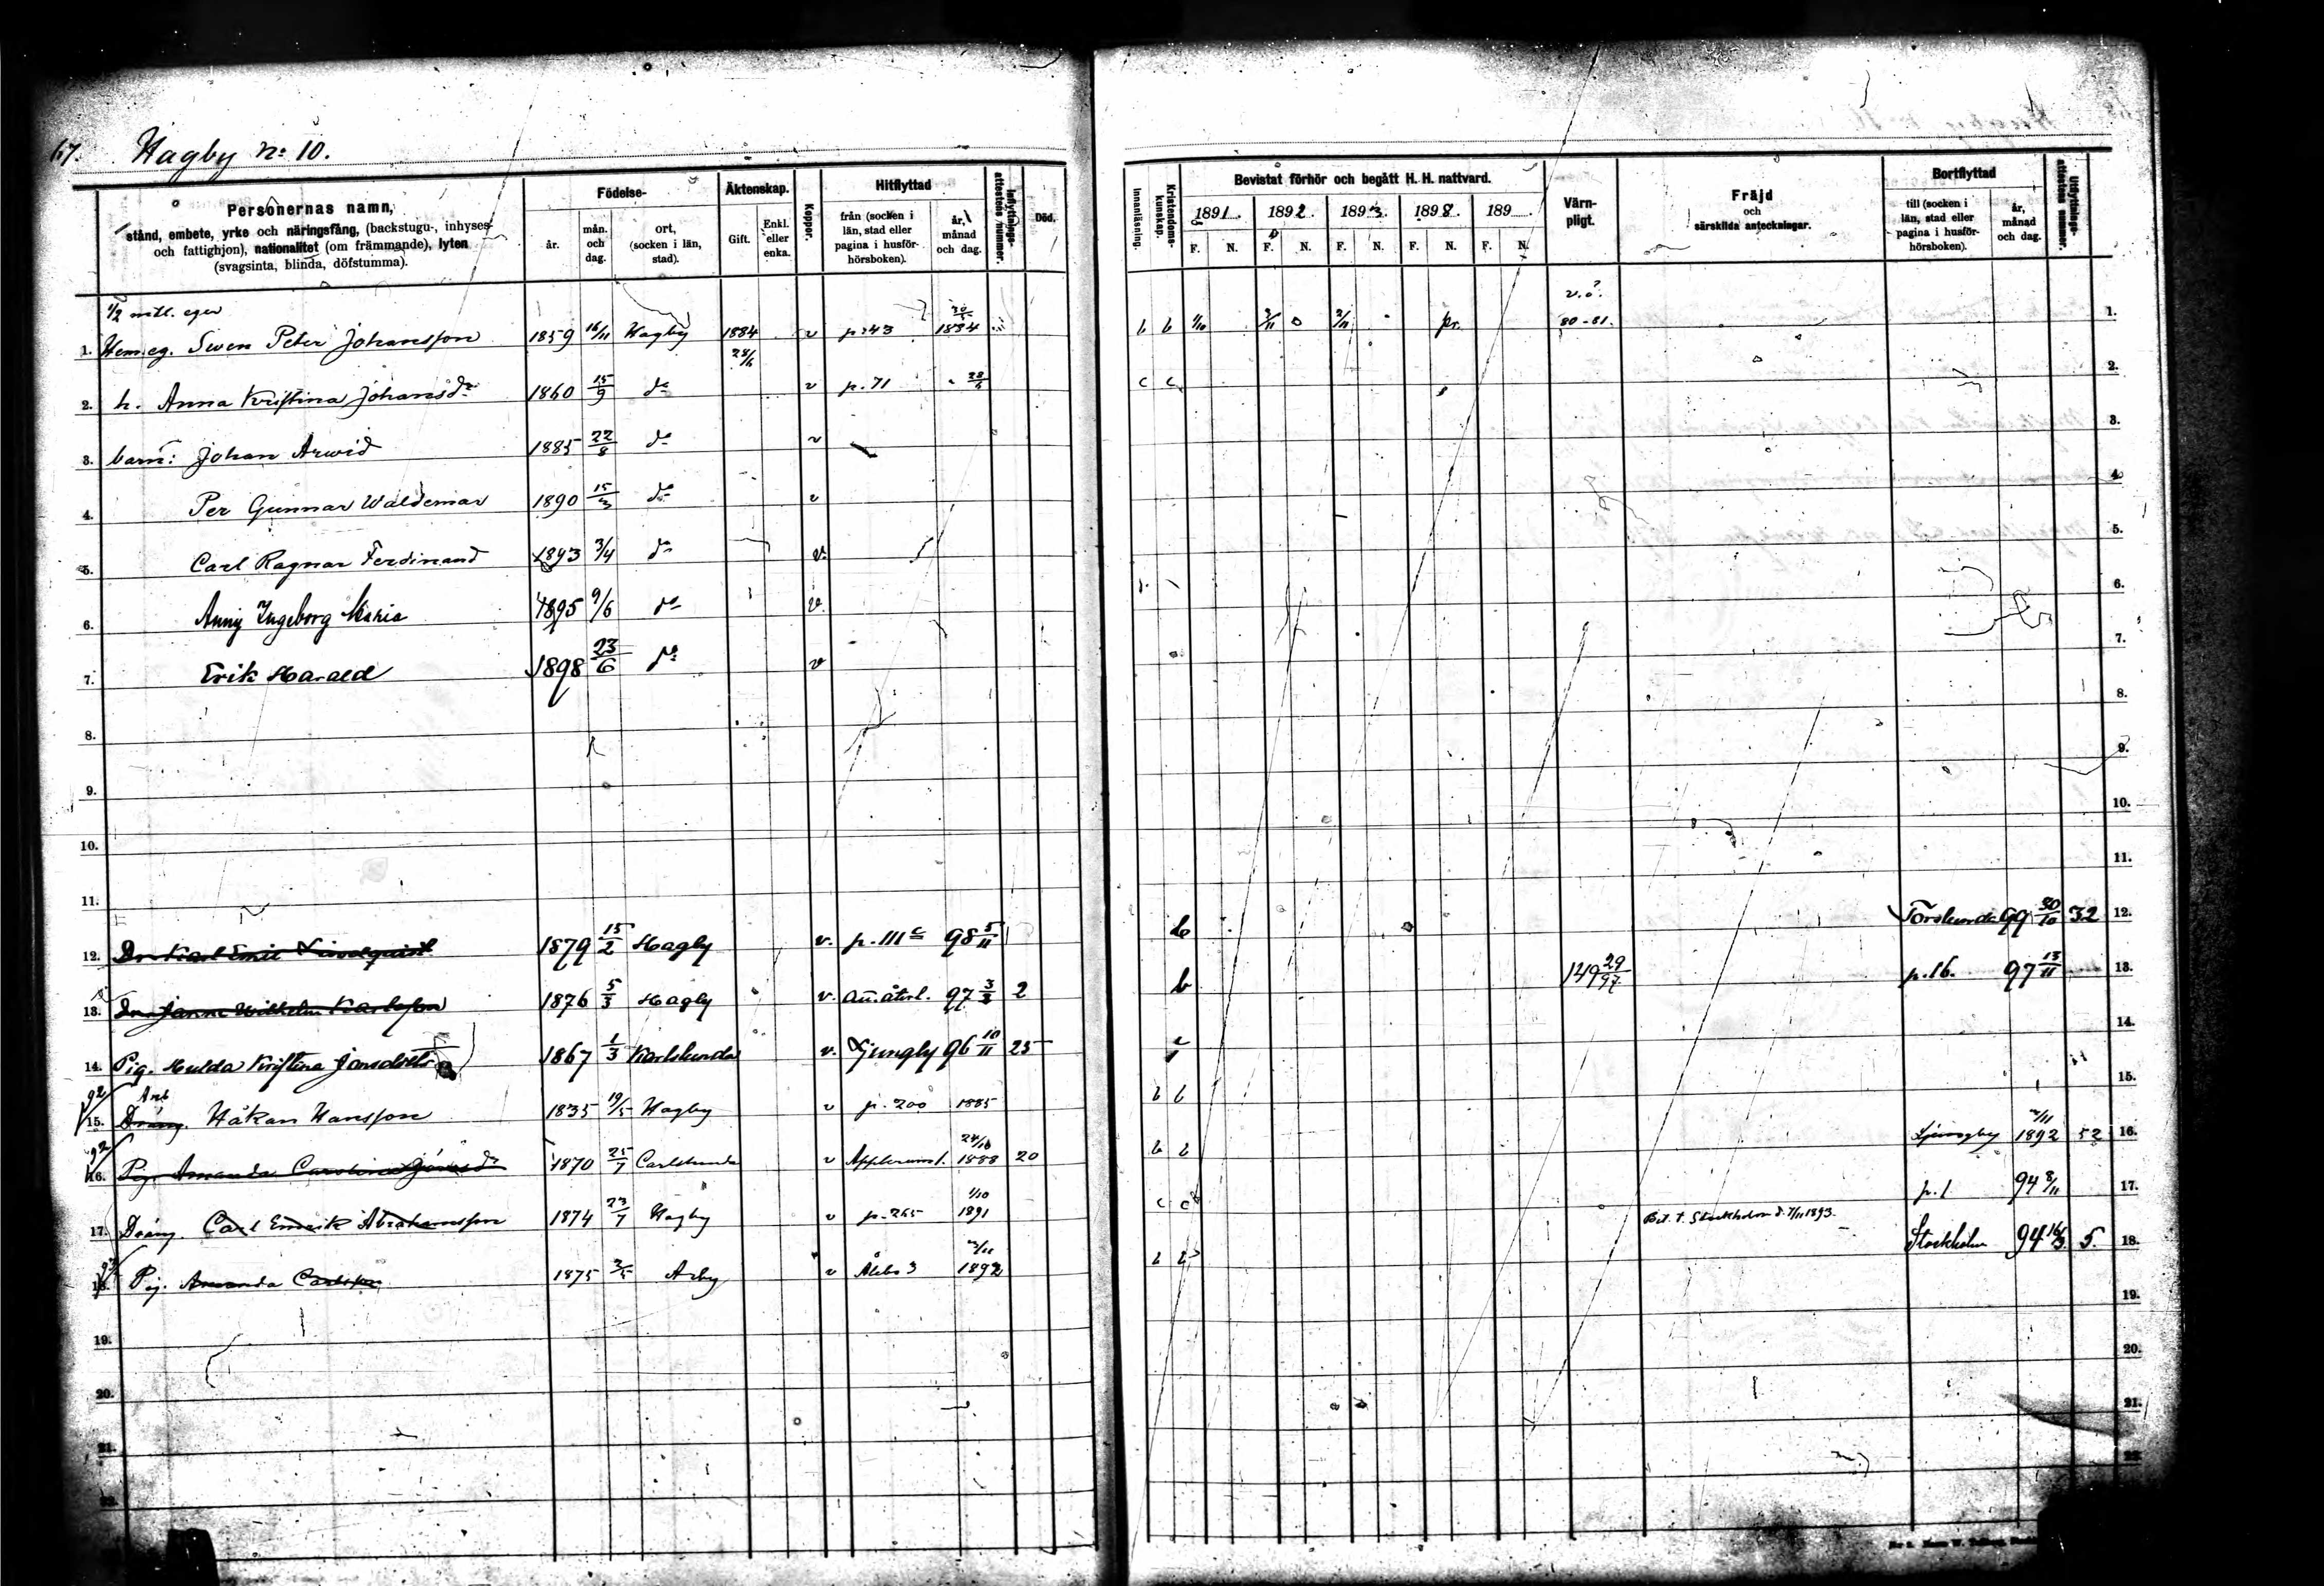 67. Hagby n: 10.
Personernas namn,
stånd, embete, yrke och näringsfång, (backstugu-, inhyses-
och fattighjon), nationalitet (om främmande), lyten
(svagsinta, blinda, döfstumma).
Födelse-
år.
mån. och dag.
ort, (socken i län, stad).
Äktenskap.
Gift.
Enkl. eller enka.
Koppor.
Hitflyttad
från (socken i län, stad eller pagina i husförhörsboken).
år, månad och dag.
Inflyttnings-attestens nummer.
Död.
Innanläsning.
Kristendoms-kunskap.
Bevistat förhör och begått H. H. nattvard.
1891. 1892. 1893. 1898. 189
F. N. F. N. F. N. F. N. F. N.
Värn-pligt.
Fräjd
och
särskilda anteckningar.
Bortflyttad
till (socken i län, stad eller pagina i husförhörsboken).
år, månad och dag.
Utflyttnings-attestens nummer.
1/2 mtl. eger
1. Hem.eg. Swen Peter Johansson 1859 16/11 Hagby 1884 28/6 v p. 43 1884 b b pr. 80-81. 1.
2. h. Anna Kristina Johansdr 1860 15/9 do v p. 71 c c 2.
3. barn: Johan Arwid 1885 22/8 do v 3.
4. Per Gunnar Waldemar 1890 15/3 do v 4.
5. Carl Ragnar Ferdinand 1893 3/4 do v. 5.
6. Anny Ingeborg Maria 1895 9/6 do v. 6.
7. Erik Harald 1898 23/6 do v 7.
8. 8.
9. 9.
10. 10.
11. 11.
12. Dr Karl Emil Lindquist 1879 15/2 Hagby v. p. 111 c 98 5/11 b Torslunda 99 30/10 32 12.
13. Dr Janne Wilhelm Karlsson 1876 5/3 Hagby v. 97 3/3 2 b 149 29/97 p. 16. 97 13/11 13.
14. Pig. Hulda Kristina Jonsdotter 1867 1/3 Karlslunda v. Ljungby 96 10/11 25 14.
92 Arb
15. Dräng. Håkan Hansson 1835 19/5 Hagby v p. 200 1885 b b 15.
92
16. Pig. Amanda Carolina Jonsdr 1870 25/7 Carlslunda v 24/10 1888 20 b b Ljungby 1892 52 16.
17. Dräng. Carl Emrik Abrahamsson 1874 23/7 Hagby v p. 265 1/10 1891 c c p. 1 94 8/11 17.
Bet. t. Stockholm d. 7/11 1893.
18. Pig. Amanda Carlsson 1875 2/5 Arby v Ålebo 3 1892 b b Stockholm 94 16/3 5. 18.
19. 19.
20. 20.
21. 21.
22. 22.